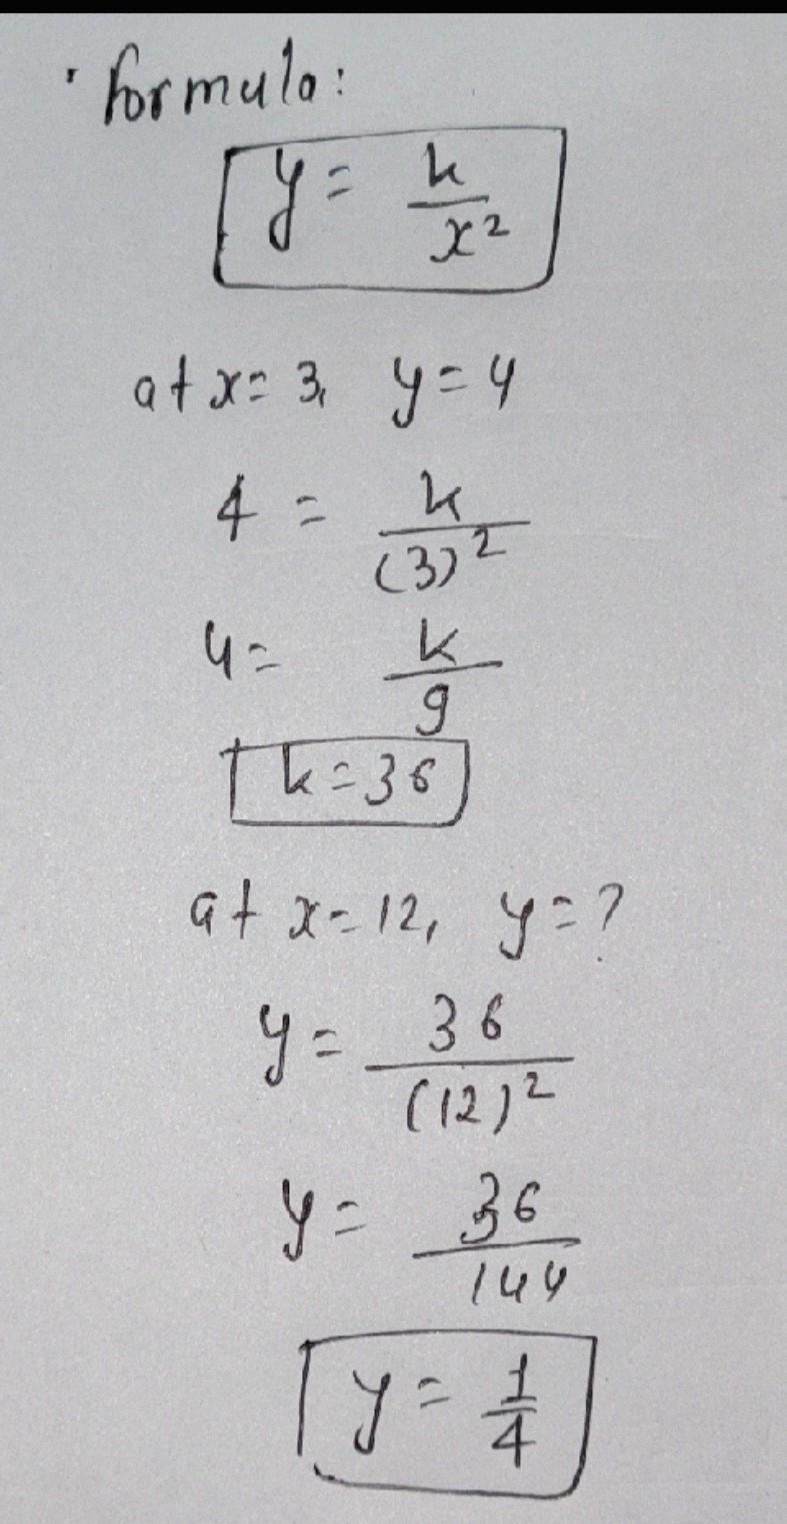 • Formula:
y = k/x²
at x = 3, y = 4
4 = k/(3)²
4 = k/9
k = 36
at x = 12, y = ?
y = 36/(12)²
y = 36/144
y = 1/4